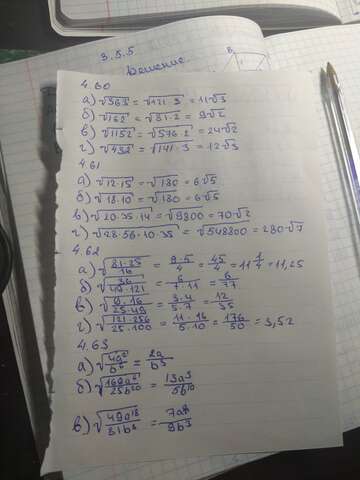 3.5.5
Решение
В
4.60
а) √363 = √121·3 = 11√3
б) √162 = √81·2 = 9√2
в) √1152 = √576·2 = 24√2
г) √432 = √141·3 = 12√3
4.61
а) √12·15 = √180 = 6√5
б) √18·10 = √180 = 6√5
в) √20·35·14 = √9800 = 70√2
г) √28·56·10·35 = √548800 = 280√7
4.62
а) √81·25/16 = 9·5/4 = 45/4 = 11 1/4 = 11,25
б) √36/49·121 = 6/7·11 = 6/77
в) √9·16/25·49 = 3·4/5·7 = 12/35
г) √121·256/25·100 = 11·16/5·10 = 176/50 = 3,52
4.63
а) √4a²/b⁶ = 2a/b³
б) √169a⁶/25b²⁰ = 13a³/5b¹⁰
в) √49a¹⁸/81b⁶ = 7a⁹/9b³